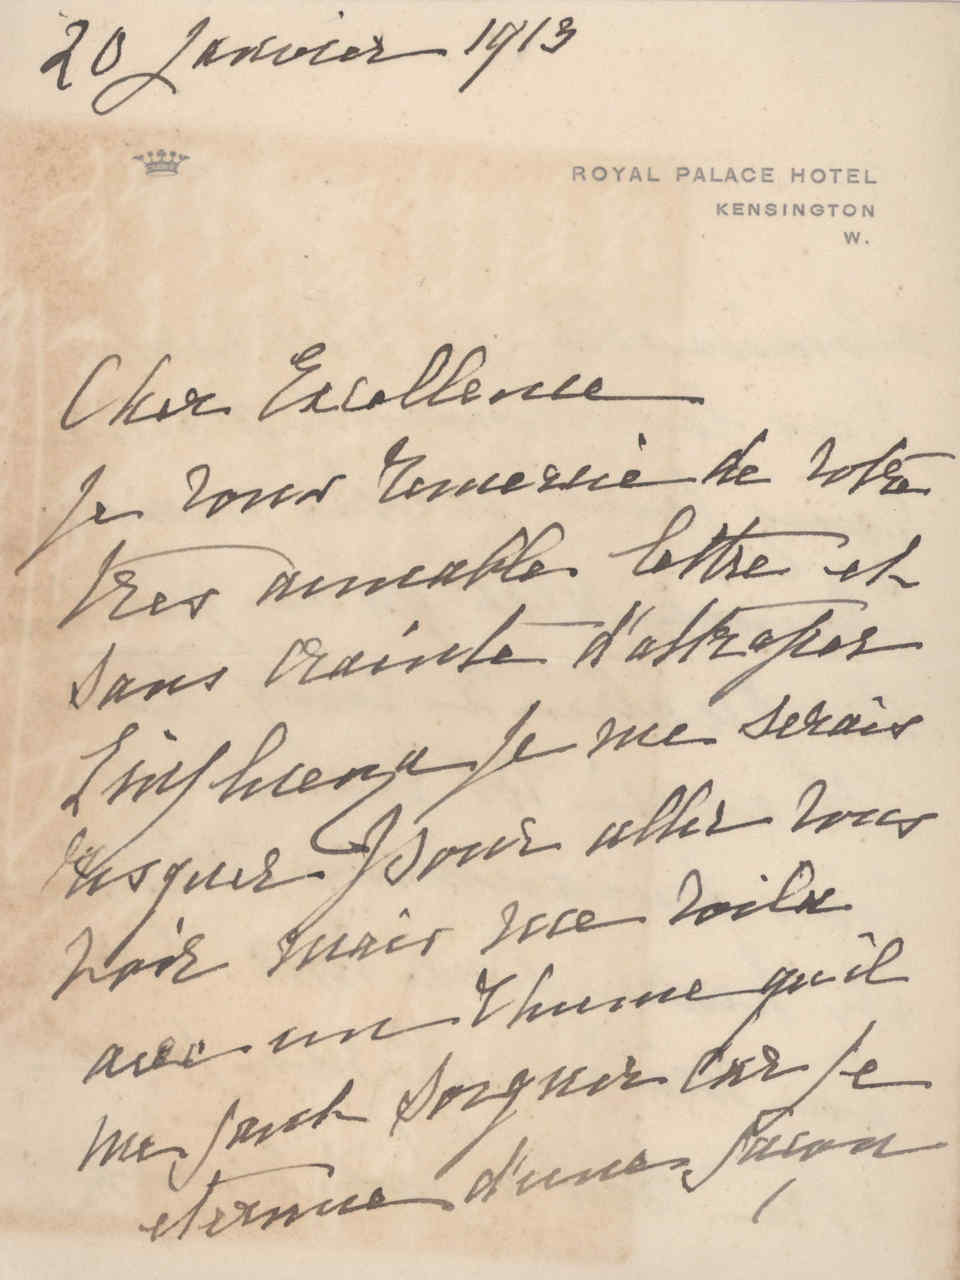 20 Janvier 1913
ROYAL PALACE HOTEL
KENSINGTON
W.
Cher Excellence
Je vous remercie de votre
tres aimable lettre et
sans crainte d'attraper
L'influenza je me serais
risquer pour aller vous
voir mais me voila
avec un rhume qu'il
me faut soigner car je
eternue d'une façon